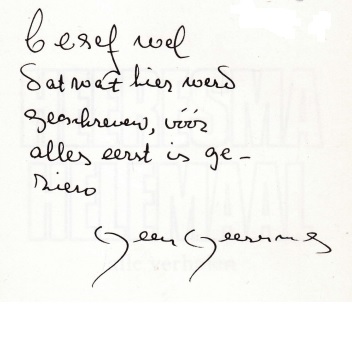 besef wel
dat wat hier werd
geschreven, vóór
alles eerst is ge-
zien